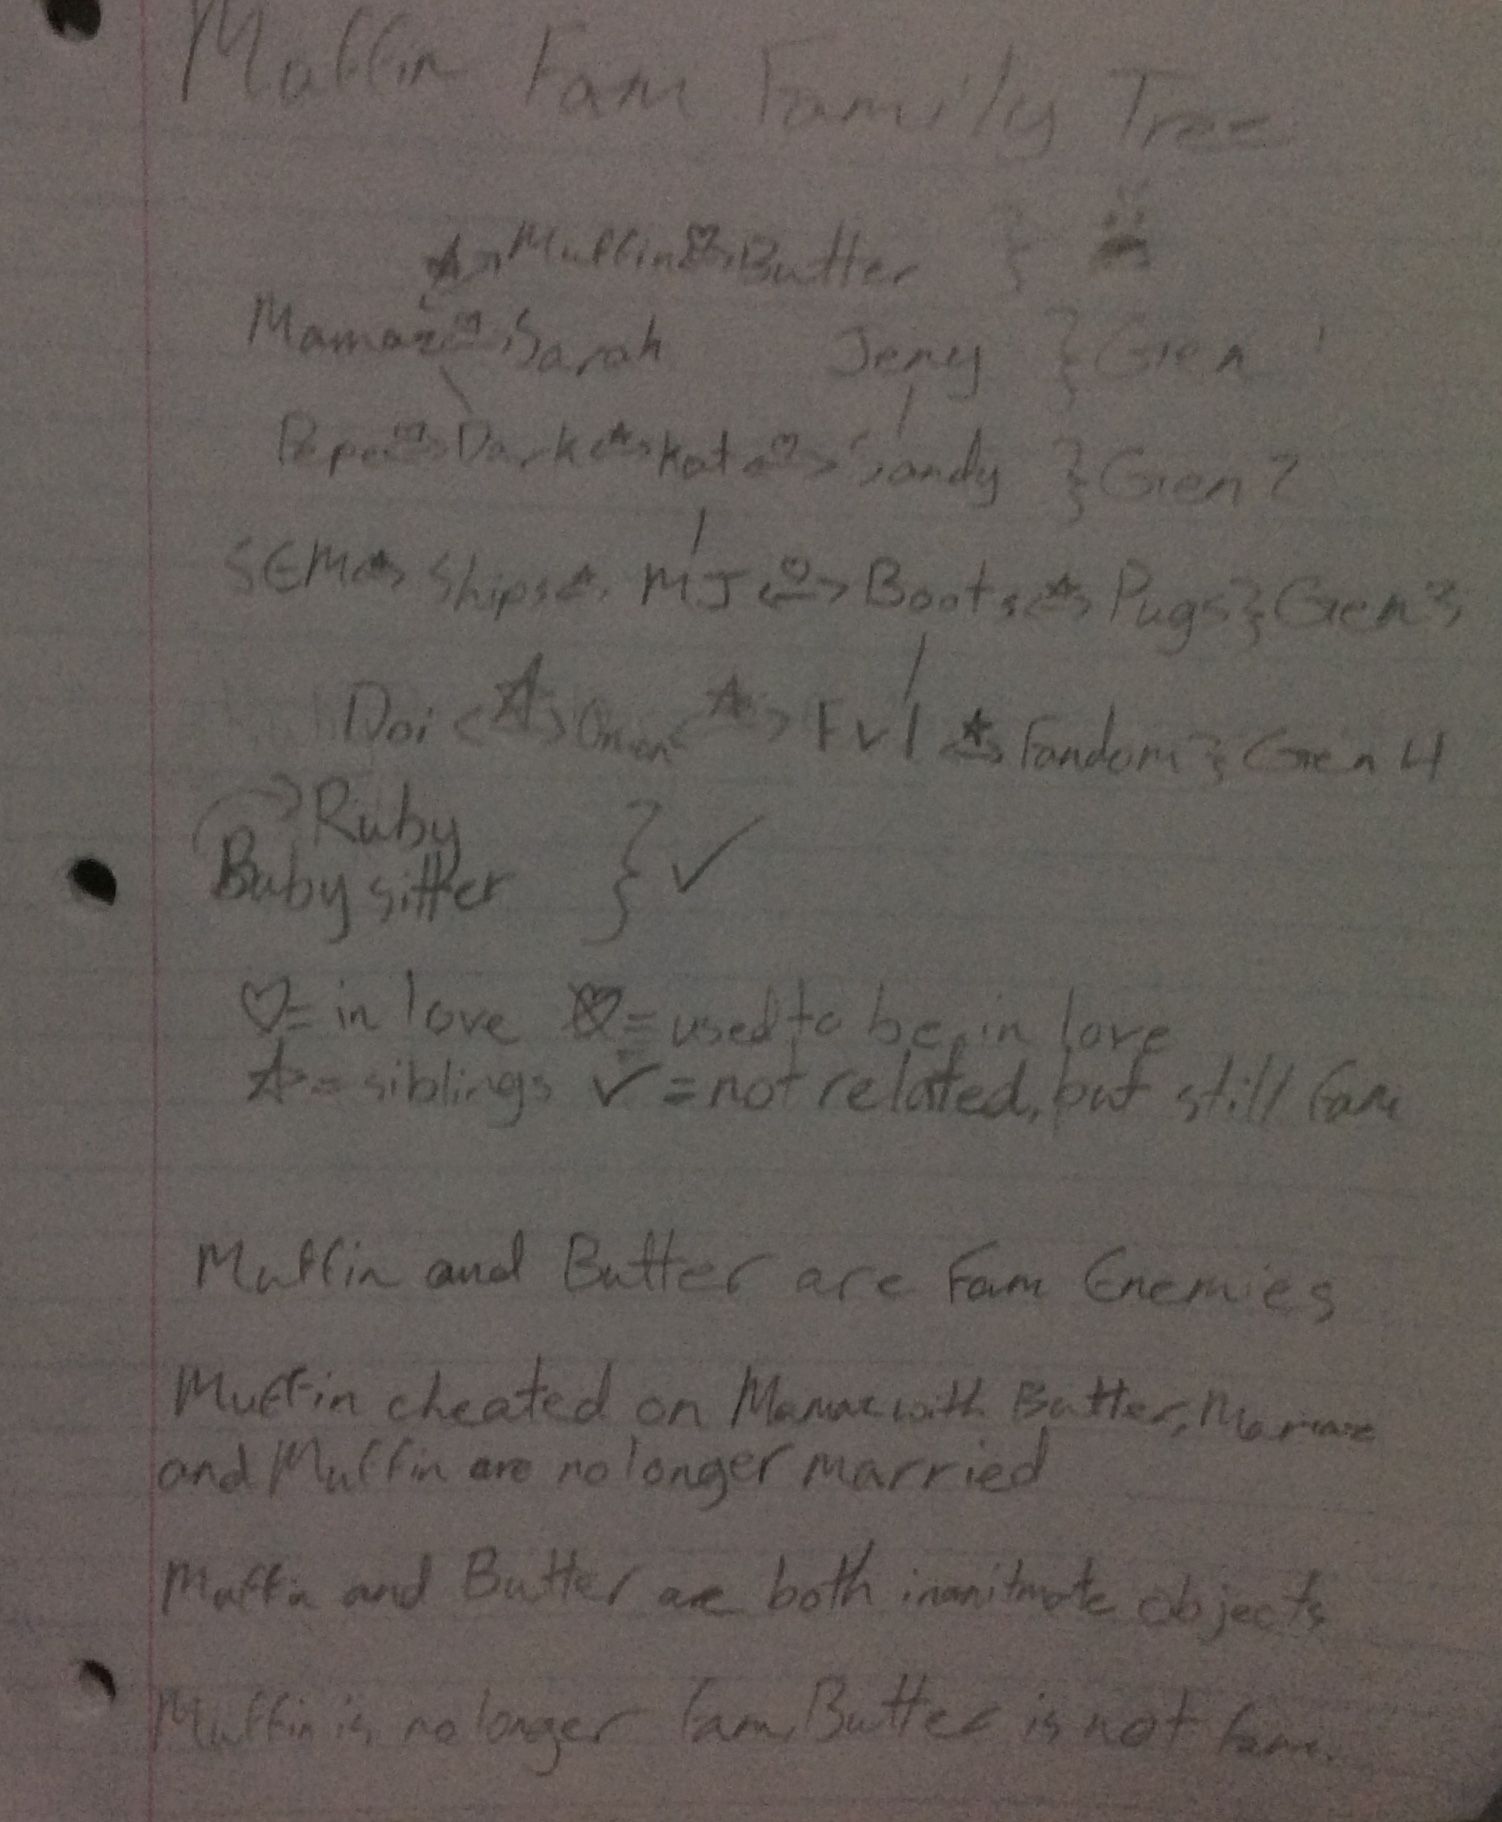 Muffin Fam Family Tree
Muffin Butter }
Mamaz Sarah Jeny } Gen 1
Pepe Dark Kat Sandy } Gen 2
SEM Ships MJ Boots Pugs } Gen 3
Doi Onion FvI Fandom } Gen 4
Ruby
Babysitter } ✓
♡ = in love = used to be in love
☆ = siblings ✓ = not related, but still fam
Muffin and Butter are Fam Enemies
Muffin cheated on Mamaz with Butter, Mamaz
and Muffin are no longer married
Muffin and Butter are both inanitmate objects
Muffin is no longer fam, Butter is not fam.